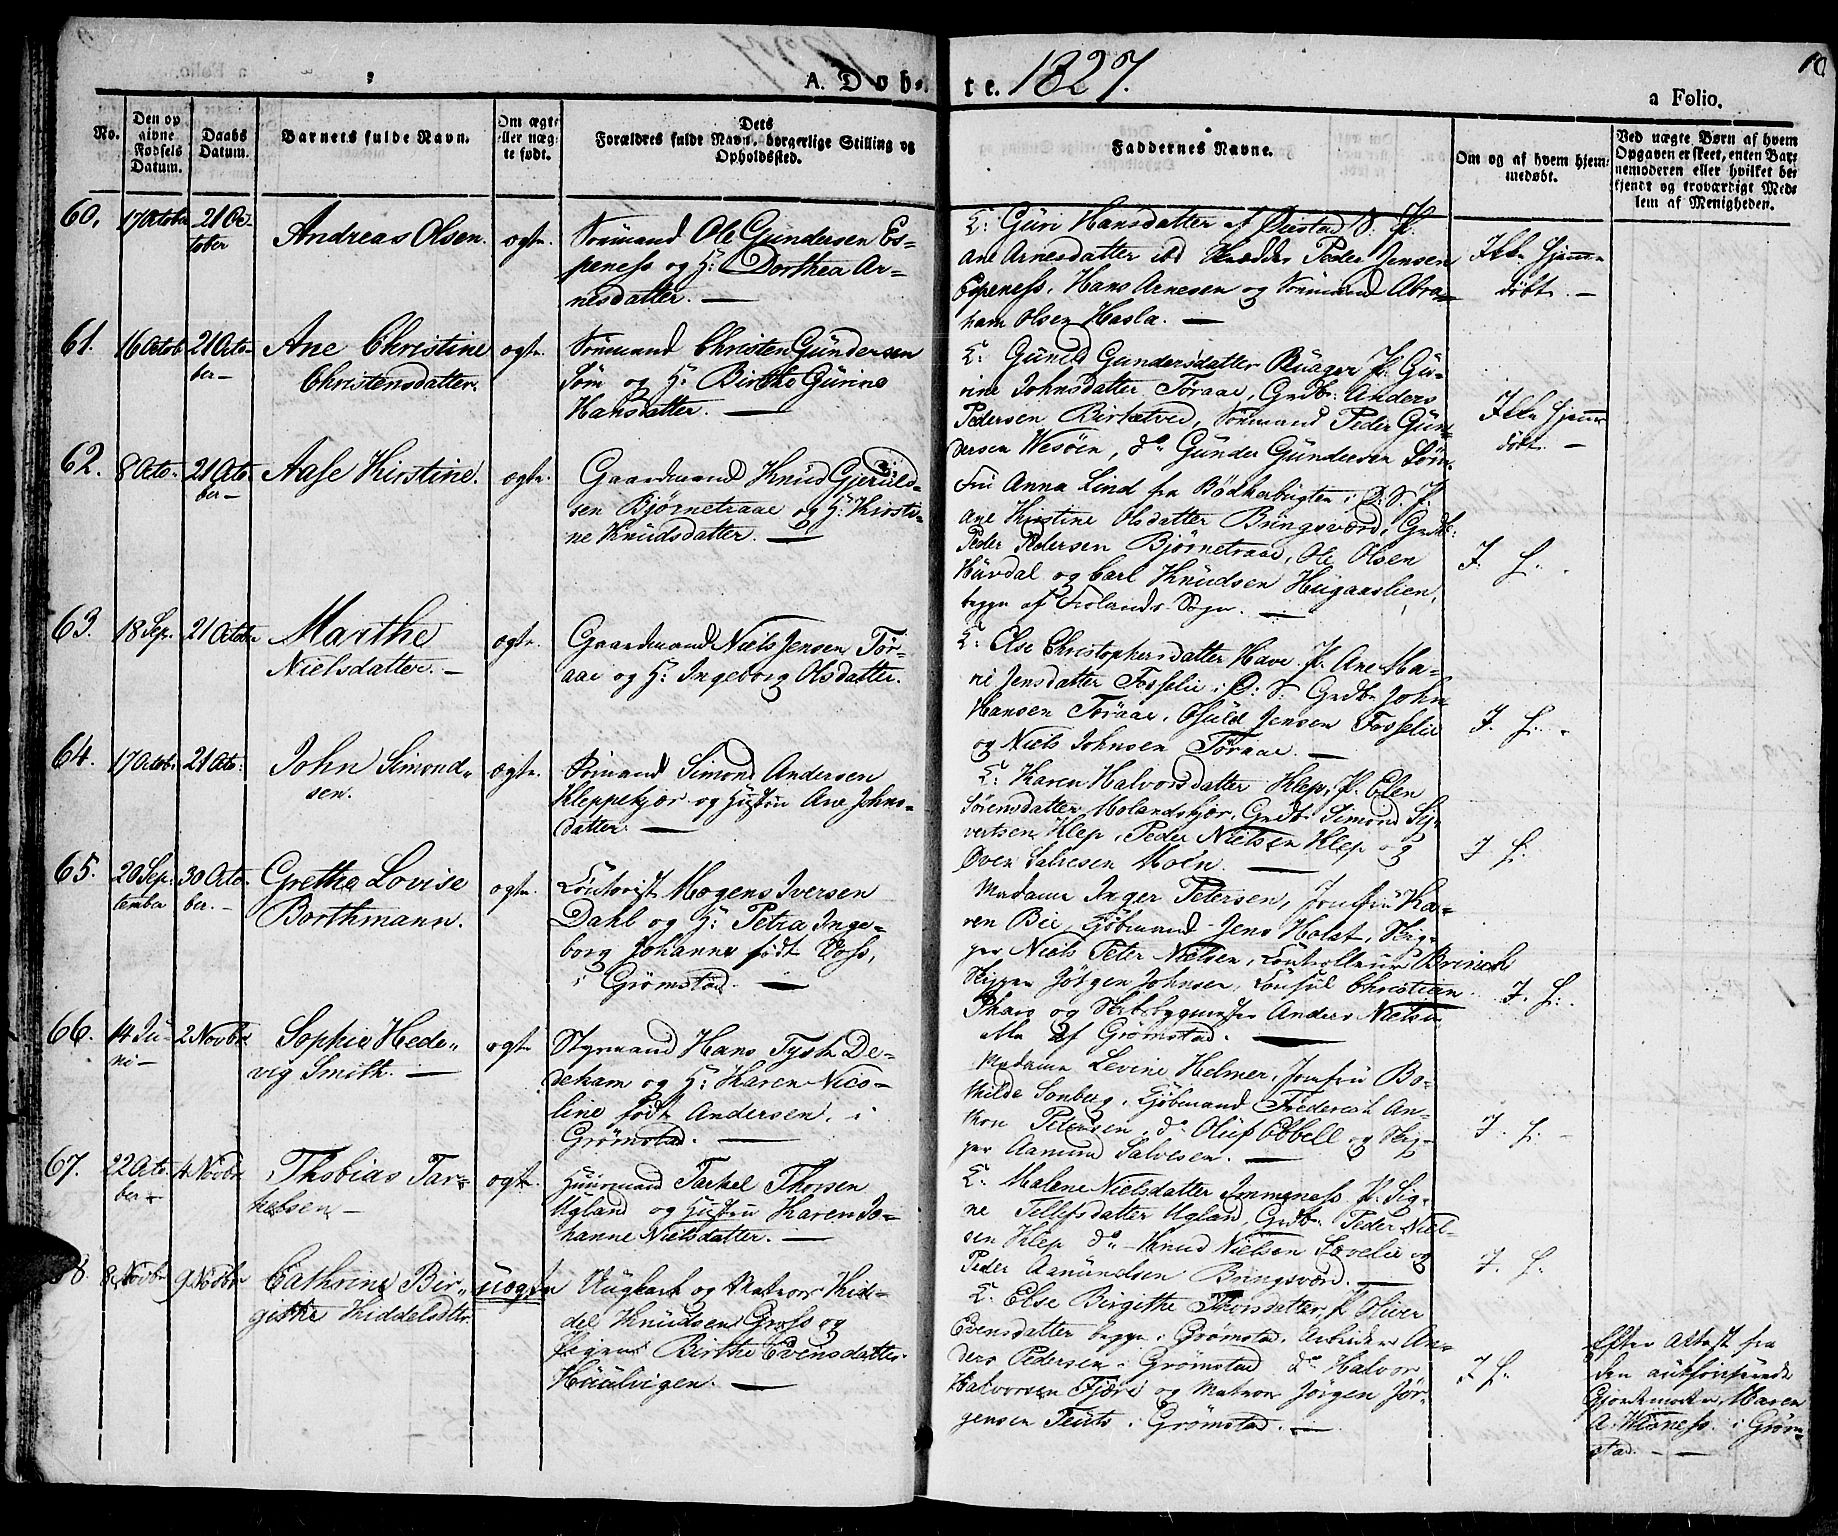 A. Døb-te. 1827.
10
a Folio.
No.
Den op
givne
Fødsels
Datum.
Daabs
Datum.
Barnets fulde Navn.
Om ægte
eller uæg-
te født.
Dets
Forældres fulde Navn, borgerlige Stilling og
Opholdssted.
Faddernes Navne.
Om og af hvem hjem-
medøbt.
Ved uægte Børn af hvem
Opgaven er skeet, enten Bar-
nemoderen eller hvilket be-
kjendt og troværdigt Med-
lem af Menigheden.
60.
17 October
21 Oc-
tober
Andreas Olsen.
ægte.
Sømand Ole Gundersen Es-
peness og H: Dorthea Ar-
nesdatter. —
Guri Hansdatter af Øiestad S. P.
Ane Arnesdatter ibd Skrædder Peder Jensen
Espeness, Hans Arnesen og Sømand Abra-
ham Olsen Hasla. —
Ikke hjemme
døbt. —
61.
16 Octob
21 Octo-
ber —
Ane Christine
Christensdatter.
ægte.
Sømand Christen Gundersen
Søm og H: Birthe Gurine
Hansdatter. —
Gunild Gundersdatter Ruager P: Gu-
rine Johnsdatter Toraae, Grdbr: Anders
Pedersen Birketvei, Sømand Peder Gun-
dersen Wesøen, do Gunder Gundersen Søm.
Ikke hjemme
døbt. —
62.
8 Octo-
21 Octo
ber —
Aase Kirstine.
ægte.
Gaardmand Knud Gjeruld-
sen Bjørnetraae og H: Kirsti-
ne Knudsdatter. —
Fru Anna Lind fra Bodkerbugten i Ø: S. P.
Ane Kirstine Olsdatter Bringsværd, Grdbr:
Peder Pedersen Bjørnetraae, Ole Olsen
Hurdal og Carl Knudsen Hugaaslien,
begge af Frolands Sogn. —
I. H.
63.
18 Sep.
21 Octob
Marthe
Nielsdatter. —
ægte.
Gaardmand Niels Jensen Tør-
aae og H: Ingeborg Olsdatter.
Else Christophersdatter Have. P. Ane Ma-
rie Jensdatter Fosselie i Ø: S: Grdbr John
Hansen Toraae, Osuld Jensen Fosselie
og Niels Johnsen Toraae. —
I. H. -
64.
17 Octob.
21 Octo:
John Simond-
sen.
ægte.
Sømand Simond Andersen
Kleppekjær og Hustru Ane Johns-
datter. —
Karen Halvorsdatter Klep, P. Elen
Sørensdatter Molandskjær, Grdbr Simond Sy-
vertsen Klep, Peder Nielsen Klep og
Oven Salvesen Moen. —
I H:
65.
20 Sep-
tember
30 Octo-
ber. -
Grethe Lovise
Borthmann.
ægte.
Contorist Mogens Iversen
Dahl og H: Petra Inge-
borg Johanne født Voss,
i Grømstad. —
Madame Inger Petersen, Jomfru Ka-
ren Bie, Kjøbmand Jens Holst, Skip-
per Niels Peter Nielsen, Controlleur Brinch
Skipper Jørgen Johnsen, Consul Christian
og Skibbygmester Anders Nielsen
Alle af Grømstad. —
I. H:.
66.
14 Ju-
ni —
2 Novbr.
Sophie Hede-
vig Smith. —
ægte
Styrmand Hans Tysk De-
dekam og H: Karen Nico-
line født Andersen. i
Grømstad. —
Madame Levine Helmer, Jomfru Bo-
thilde Sonberg, Kjøbmand Frederich An-
thon Petersen, do Oluf Ebbell og Skip-
per Aamund Salvesen. —
I. H. -
67.
22 Octo-
ber -
4 Novbr
Thobias Tar-
kelsen —
ægte.
Huusmand Tarkel Thorsen
Ugland og Hustru Karen Jo-
hanne Nielsdatter. —
Malene Nielsdatter Immeness. P. Sig-
ne Tellefsdatter Ugland, Grdbr. Peder Niel-
sen Klep do — Knud Nielsen Løvelie og
Peder Aamundsen Bringsværd. —
I. H.
68.
8 Novbr
9 Novbr
Cathrine Bir-
gitthe Kiddelsdtr.
uægte
Ungkarl og Matros Kid-
del Knudsen Gross og
Pigen Birthe Evensdatter
Huulvigen. —
Else Birgithe Thorsdatter, P. Oliver
Evensdatter begge i Grømstad, Arbeider An-
ders Pedersen i Grømstad do Halvor
Halvorsen Fjære og Matros Jørgen Jør-
gensen Teuts i Grømstad. —
I H.
Efter Attest fra
den authoriserede
Gjordemoder Maren
A. i Grøm-
stad. —